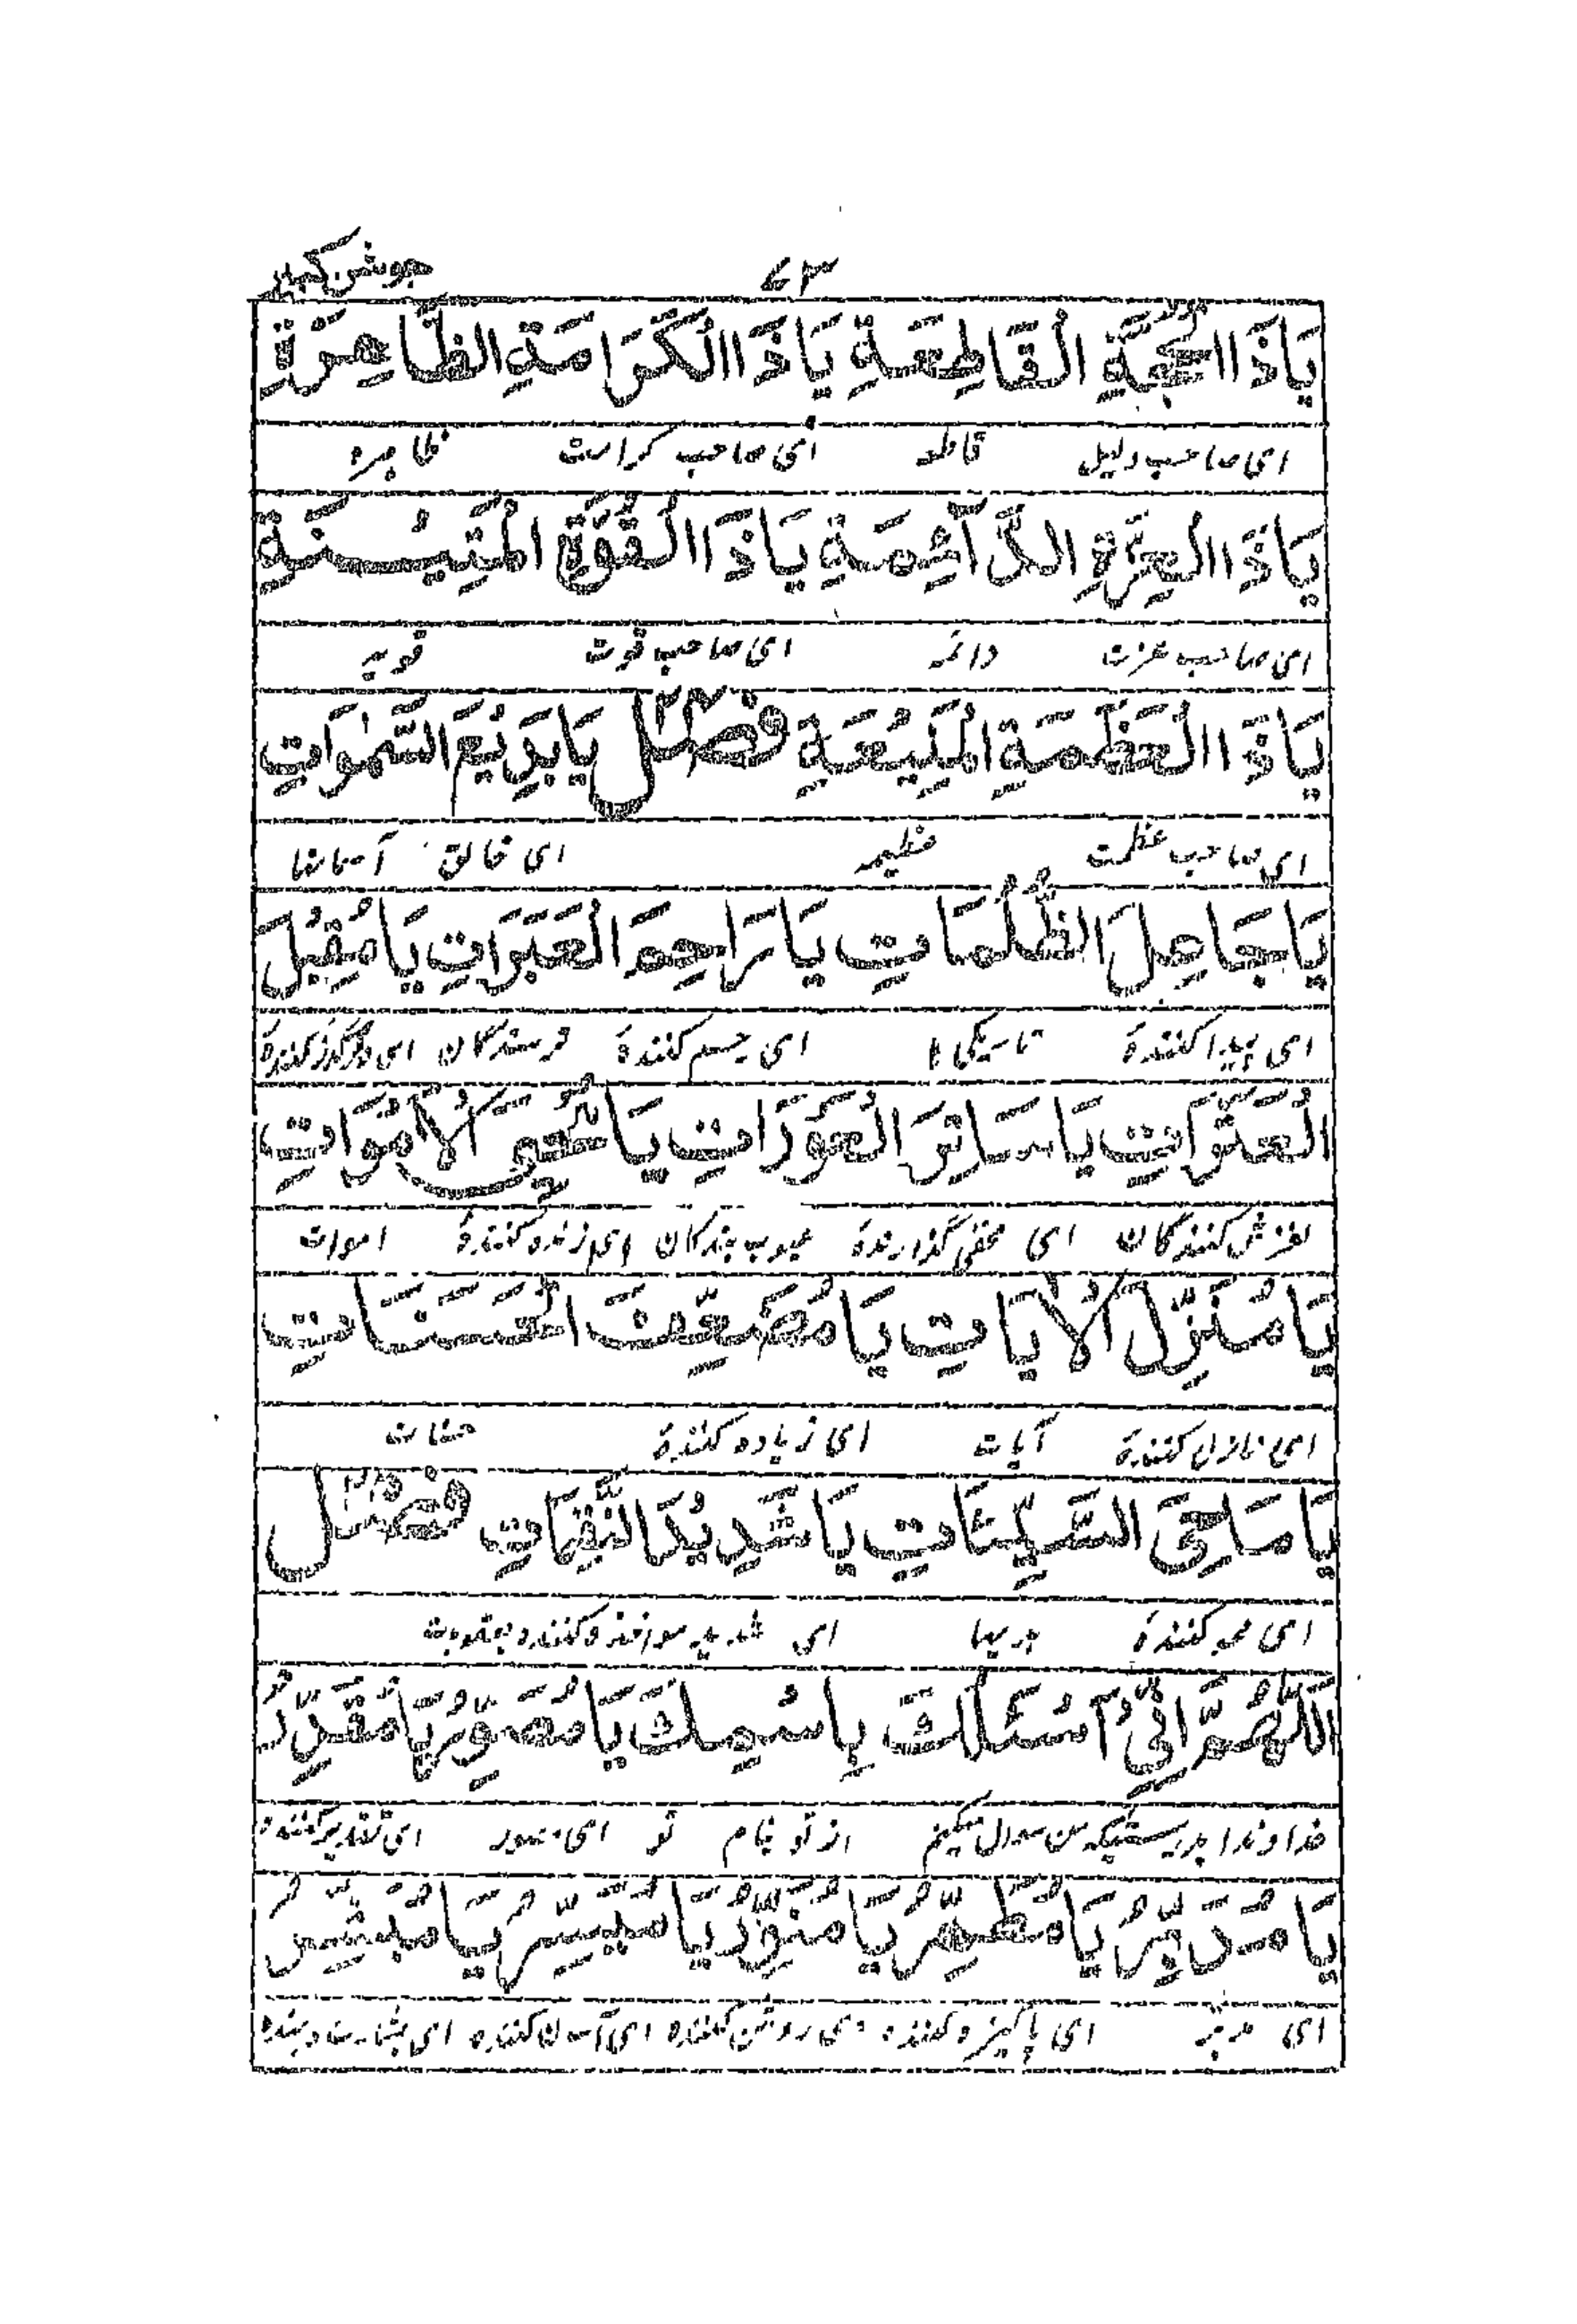 ۶۳ جوشن کبیر
يَا ذَا الْحُجَّةِ الْقَاطِعَةِ يَا ذَا الْكَرَامَةِ الظَّاهِرَةِ
ای صاحب دلیل قاطعه ای صاحب کرامت ظاهره
يَا ذَا الْعِزَّةِ الدَّآئِمَةِ يَا ذَا الْقُوَّةِ الْمَتِيْنَةِ
ای صاحب عزت دائمه ای صاحب قوت قویه
يَا ذَا الْعَظَمَةِ الْمَنِيْعَةِ فصل ۲۴ يَا بَدِيْعَ السَّمٰوَاتِ
ای صاحب عظمت عظیمه ای خالق آسمانها
يَا جَاعِلَ الظُّلُمَاتِ يَا رَاحِمَ الْعَبَرَاتِ يَا مُقِيْلَ
ای پیدا کنندهٔ تاریکی ای رحم کنندهٔ ای درگذر کنندهٔ
الْعَثَرَاتِ يَا سَاتِرَ الْعَوْرَاتِ يَا مُحْيِيَ الْاَمْوَاتِ
لغزش کنندگان ای مخفی گذارندهٔ عیوب بندگان ای زنده کنندهٔ اموات
يَا مُنَزِّلَ الْاٰيَاتِ يَا مُضَعِّفَ الْحَسَنَاتِ
ای نازل کنندهٔ آیات ای زیاده کنندهٔ حسنات
يَا مَاحِيَ السَّيِّئَاتِ يَا شَدِيْدَ النَّقِمَاتِ فصل ۲۵
ای محو کنندهٔ بدیها ای شدید مواخذه کننده بعقوبت
اَللّٰهُمَّ اِنِّيْ اَسْئَلُكَ بِاسْمِكَ يَا مُصَوِّرُ يَا مُقَدِّرُ
خداوندا بدرستیکه من سوال میکنم از تو بنام تو ای مصور ای تقدیر کننده
يَا مُدَبِّرُ يَا مُطَهِّرُ يَا مُنَوِّرُ يَا مُيَسِّرُ يَا مُبَشِّرُ
ای مدبر ای پاکیزه کننده ای روشن کننده ای آسان کننده ای بشارت دهنده